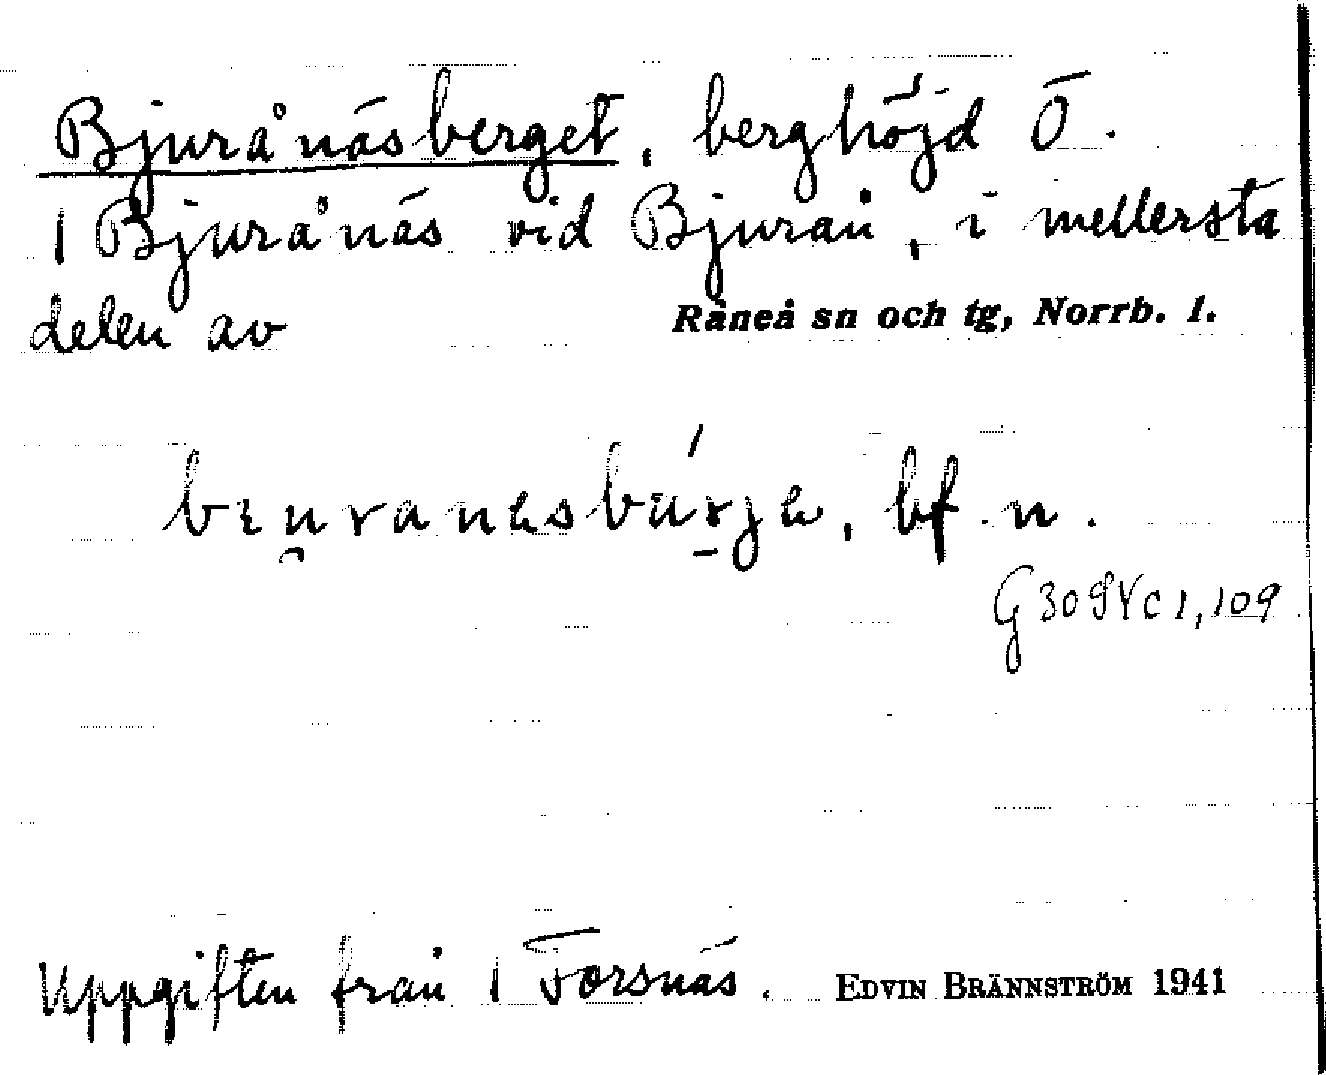 Bjurånäsberget, berghöjd Ö.
1 Bjurånäs vid Bjurån, i mellersta
delen av Råneå sn och tg, Norrb. l.
bf. n.
1,109
Uppgiften från 1 Forsnäs. EDVIN BRÄNNSTRÖM 1941